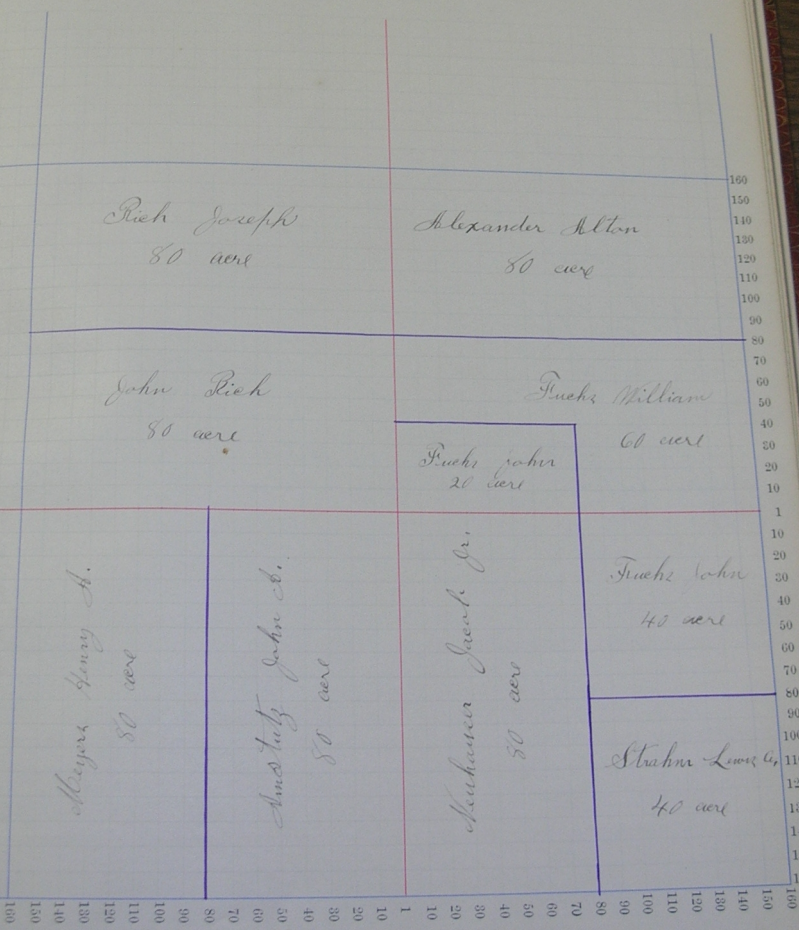 Rich Joseph
80 acre
Alexander Alton
80 acre
John Rich
80 acre
Fuchs William
60 acre
Fuchs John
20 acre
Meyers Henry A.
80 acre
Amstutz John A.
80 acre
Neuhauser Jacob Jr.
80 acre
Fuchs John
40 acre
Strahm Lewis
40 acre
160
150
140
130
120
110
100
90
80
70
60
50
40
30
20
10
1
10
20
30
40
50
60
70
80
90
160 150 140 130 120 110 100 90 80 70 60 50 40 30 20 10 1 10 20 30 40 50 60 70 80 90 100 110 120 130 140 150 160